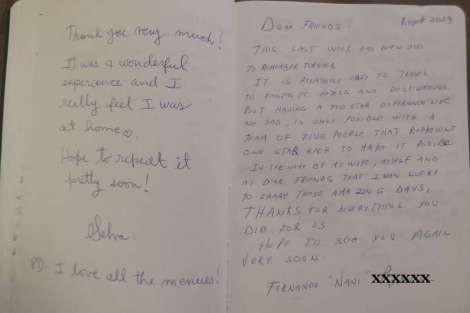 Thank you very much!
It was a wonderful
experience and I
really feel I was
at home
Hope to repeat it
pretty soon!
Selva.
PD: I love all the menues!
Dear Friends: August 2023
THIS LAST WEEK HAS BEEN ONE
TO REMEMBER FOREVER
IT IS RELATIVELY EASY TO TRAVEL
TO HOTELS AND
BUT HAVING A FIVE STAR EXPERIENCE LIKE
WE HAD, IS ONLY POSSIBLE WITH A
TEAM OF FIVE PEOPLE THAT REPRESENT
ONE STAR EACH TO MAKE IT POSSIBLE
IN THE NAME OF MY WIFE, MYSELF AND
MY DEAR FRIENDS THAT I WAS LUCKY
TO SHARE THOSE AMAZING DAYS,
THANKS FOR EVERYTHING YOU
DID FOR US
HOPE TO SEE YOU AGAIN
VERY SOON.
FERNANDO "NANI" XXXXXX